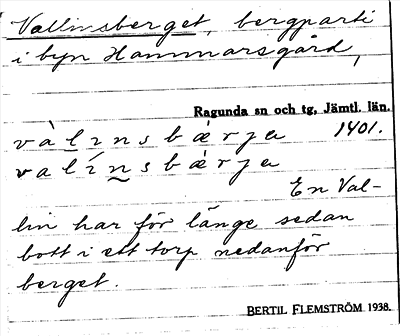 Vallinsberget, bergparti
i byn Hammarsgård,
Ragunda sn och tg, Jämtl. län.
vàlɪnsbærja 1401.
valínsbærja
En Val-
lin har för länge sedan
bott i ett torp nedanför
berget.
BERTIL FLEMSTRÖM 1938.